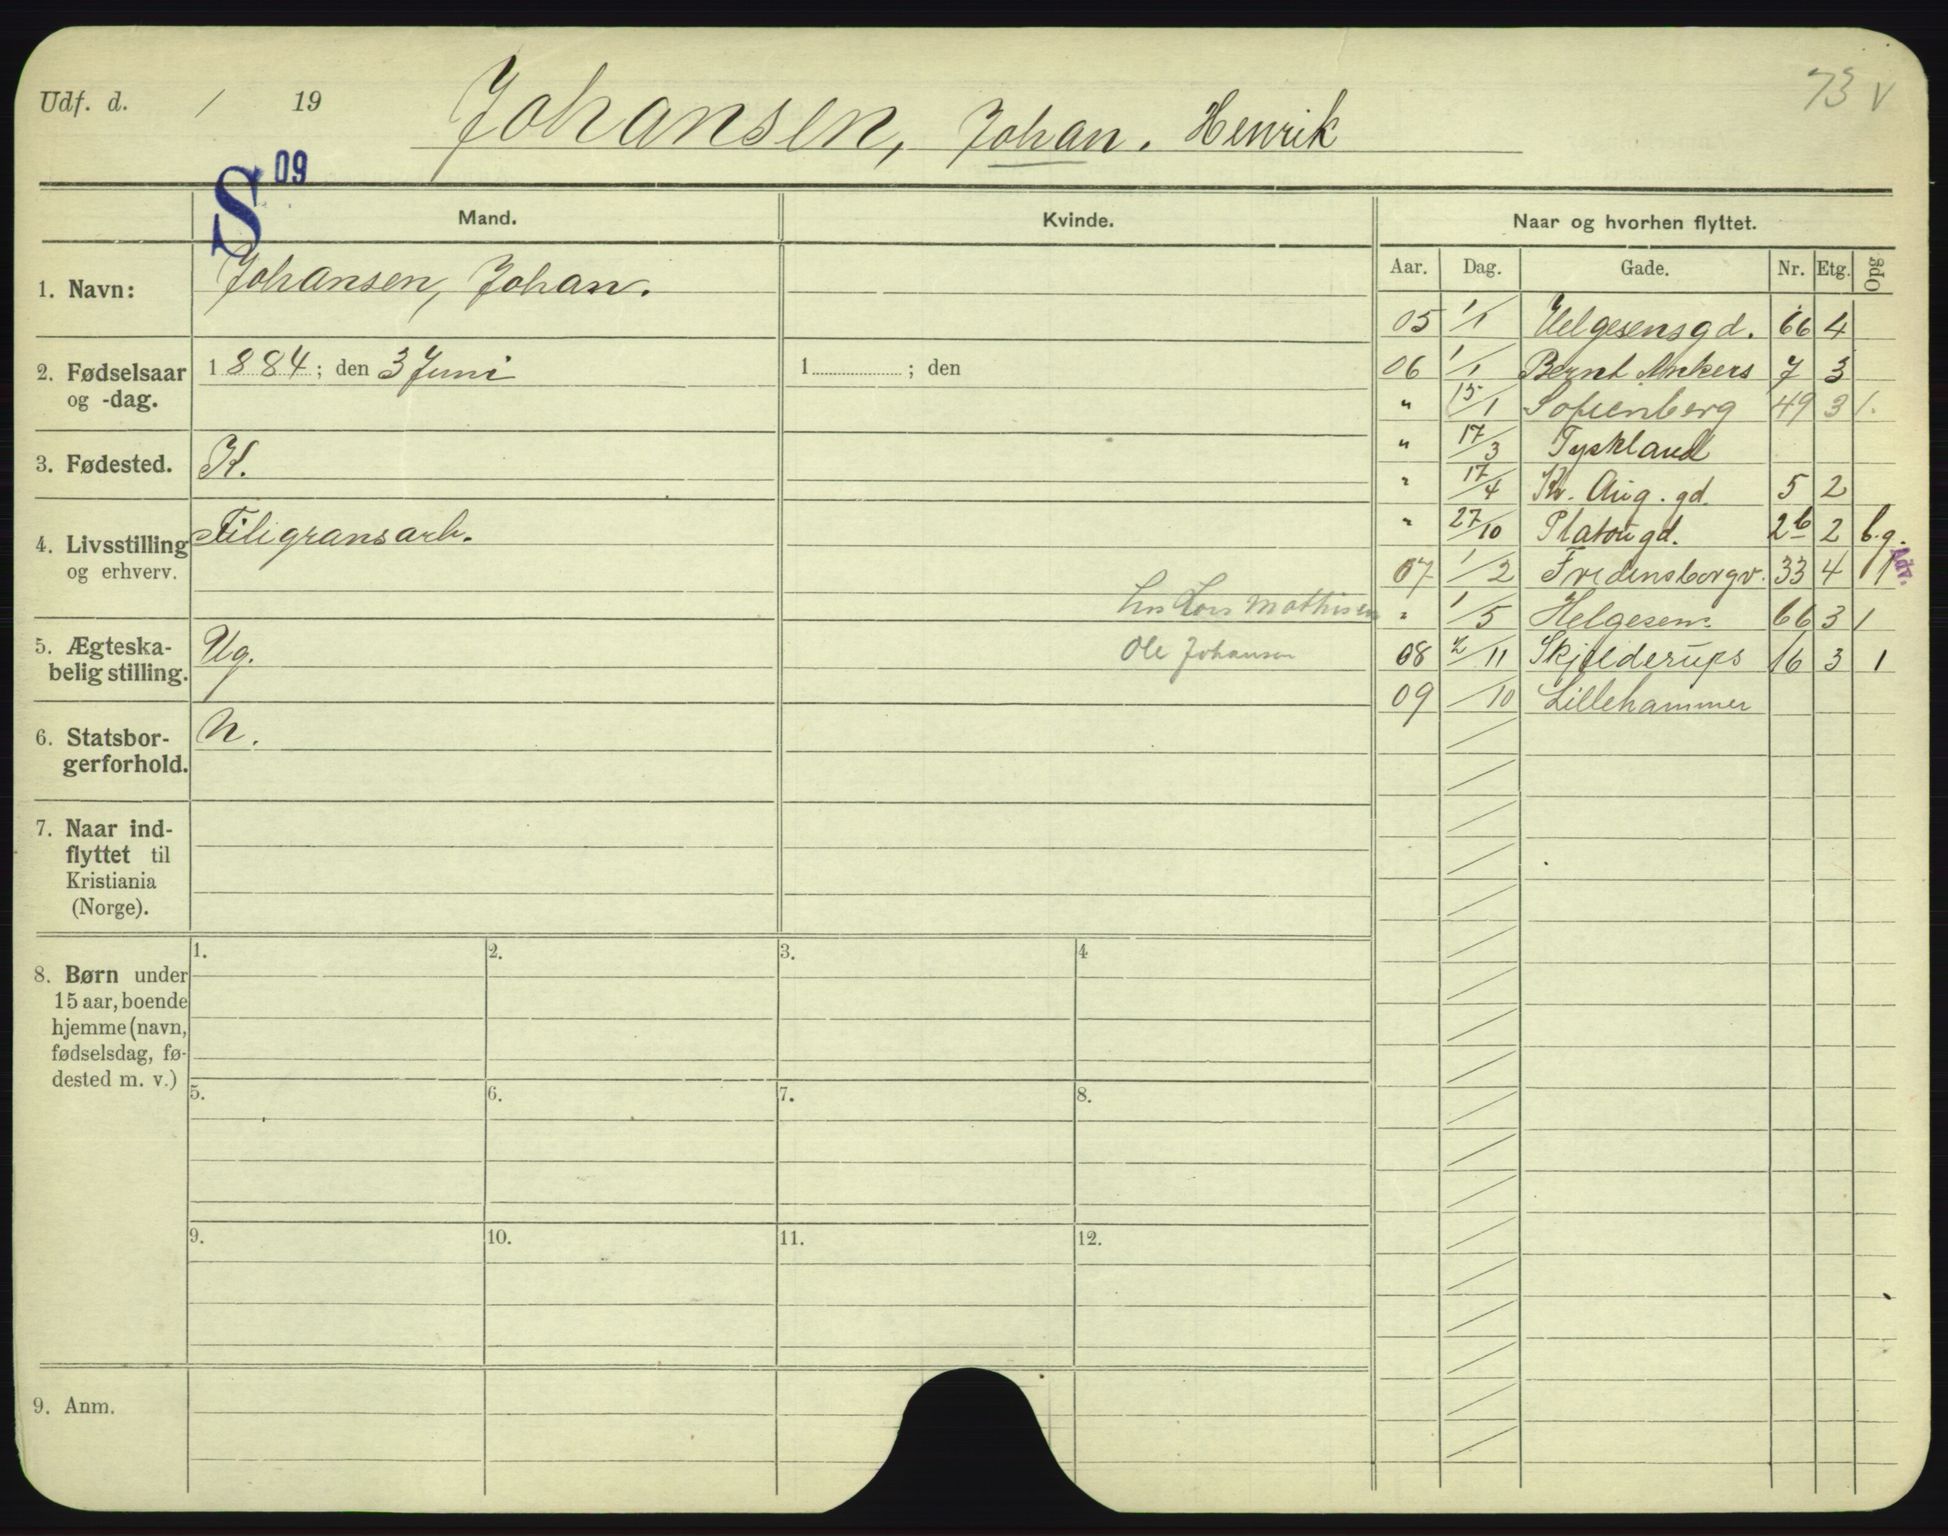 Udf. d. / 19 Johansen, Johan. Henrik 73 v
S 09
Mand. Kvinde. Naar og hvorhen flyttet.
Aar. Dag. Gade. Nr. Etg. Opg
1. Navn: Johansen, Johan.
2. Fødselsaar og -dag. 1884; den 3 Juni 1 ; den
3. Fødested. K.
4. Livsstilling og erhverv. Filigransarb.
5. Ægteska-
belig stilling. Ug.
6. Statsbor-
gerforhold. N.
7. Naar ind-
flyttet til
Kristiania
(Norge).
8. Børn under
15 aar, boende
hjemme (navn,
fødselsdag, fø-
dested m. v.)
1. 2. 3. 4
5. 6. 7. 8.
9. 10. 11. 12.
9. Anm.
hos Lars Mathisen
Ole Johansen
05 1/1 Helgesensgd. 66 4
06 1/1 Bernt Ankers 7 3
" 15/1 Sofienberg 49 3 1.
" 17/3 Tyskland
" 17/4 Kr. Aug. gd. 5 2
" 27/10 Platougd. 2b 2 b.g.
07 1/2 Fredensborgv. 33 4 1 Adv.
" 1/5 Helgesens 66 3 1
08 2/11 Skjelderups 16 3 1
09 /10 Lillehammer